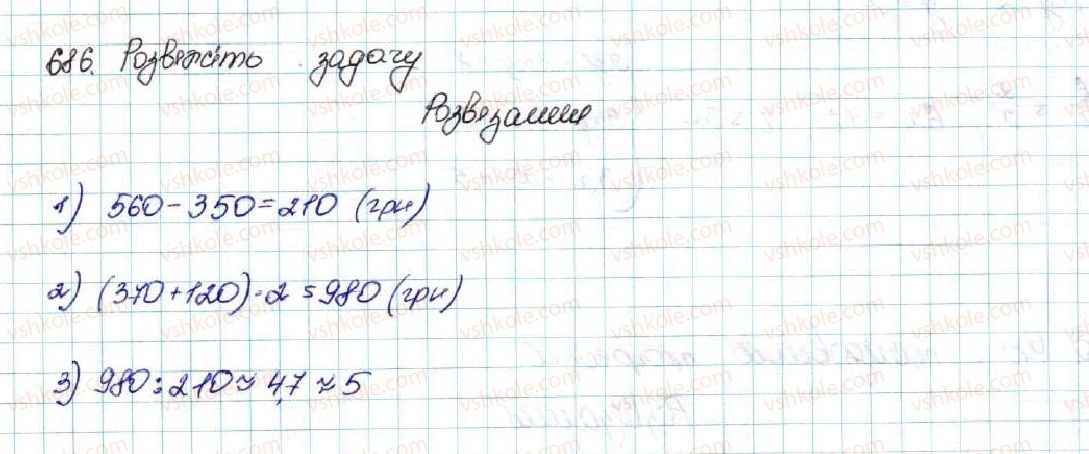 686. Розвяжіть задачу
Розвязання
1) 560 - 350 = 210 (грн)
2) (370 + 120) · 2 = 980 (грн)
3) 980 : 210 ≈ 4,7 ≈ 5